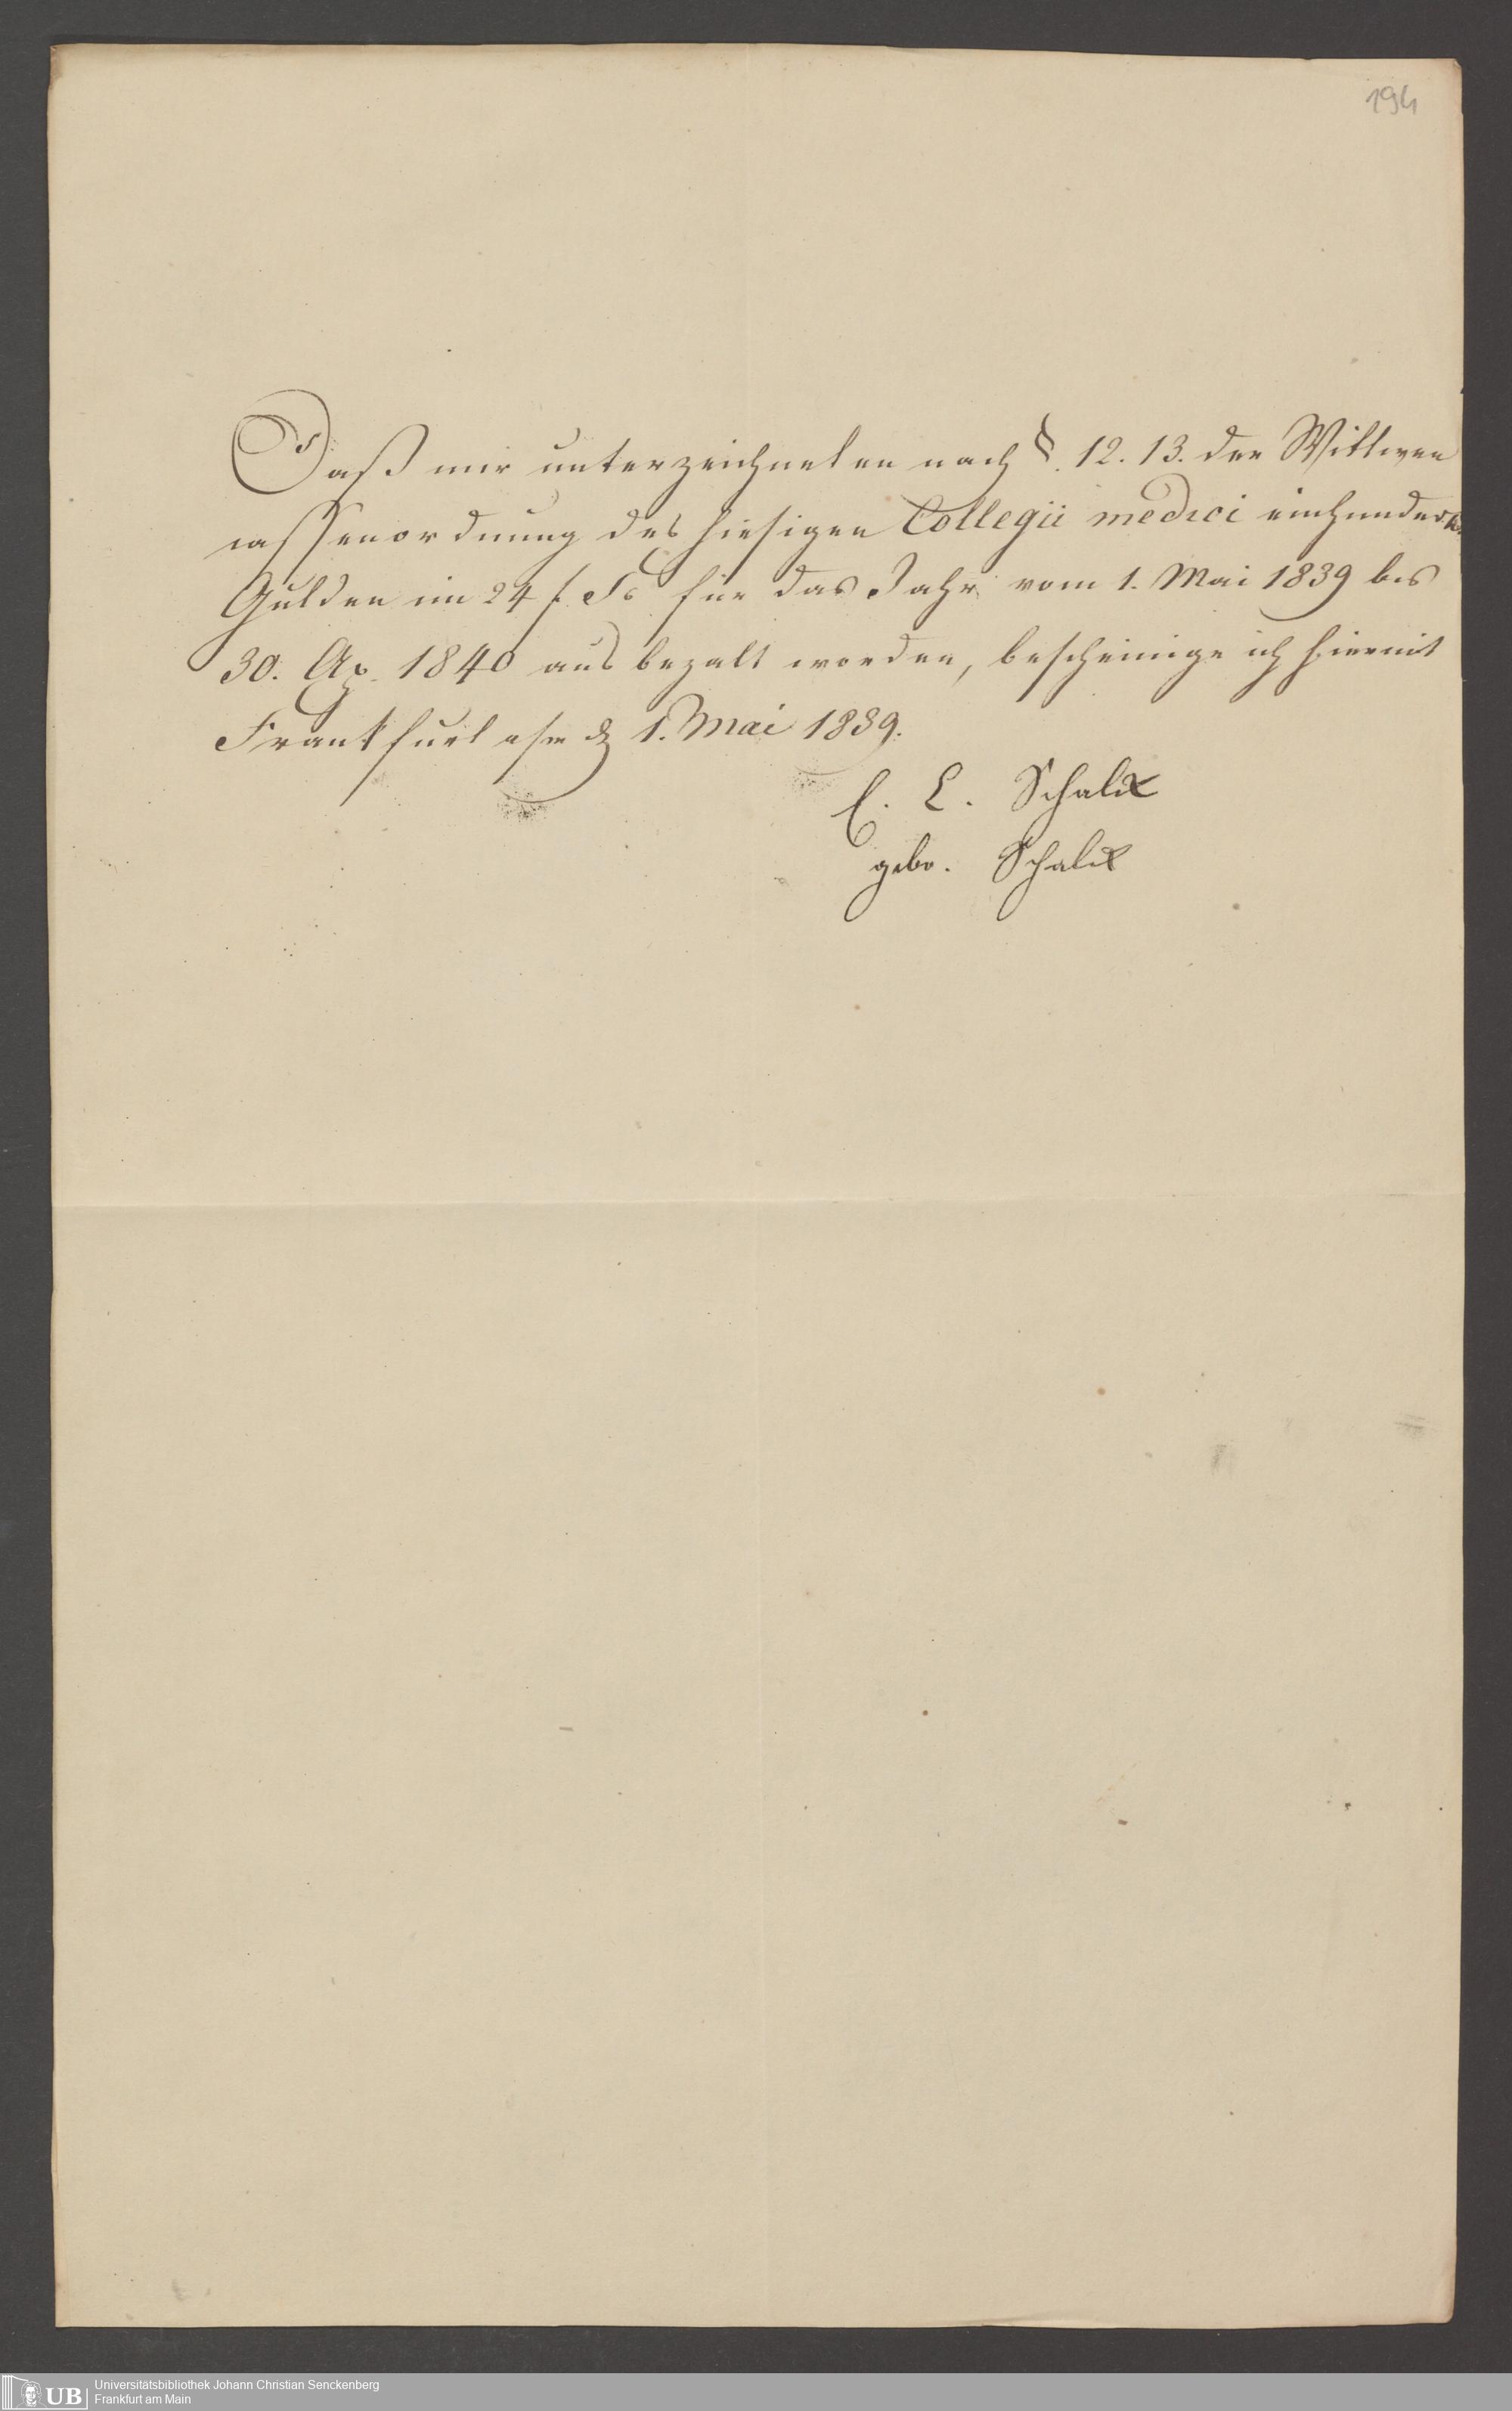 194
Daß mir unterzeichneten nach §. 12. 13. der Wittwen
cassenordnung des hiesigen Collegii medici einhundert
Gulden im 24 f. Fs für das Jahr vom 1. Mai 1839 bis
30. Ap. 1840 ausbezalt worden, bescheinige ich hiermit
Frankfurt a/m d 1. Mai 1839.
C. L. Schalk
gebo. Schalk
UB
Universitätsbibliothek Johann Christian Senckenberg
Frankfurt am Main